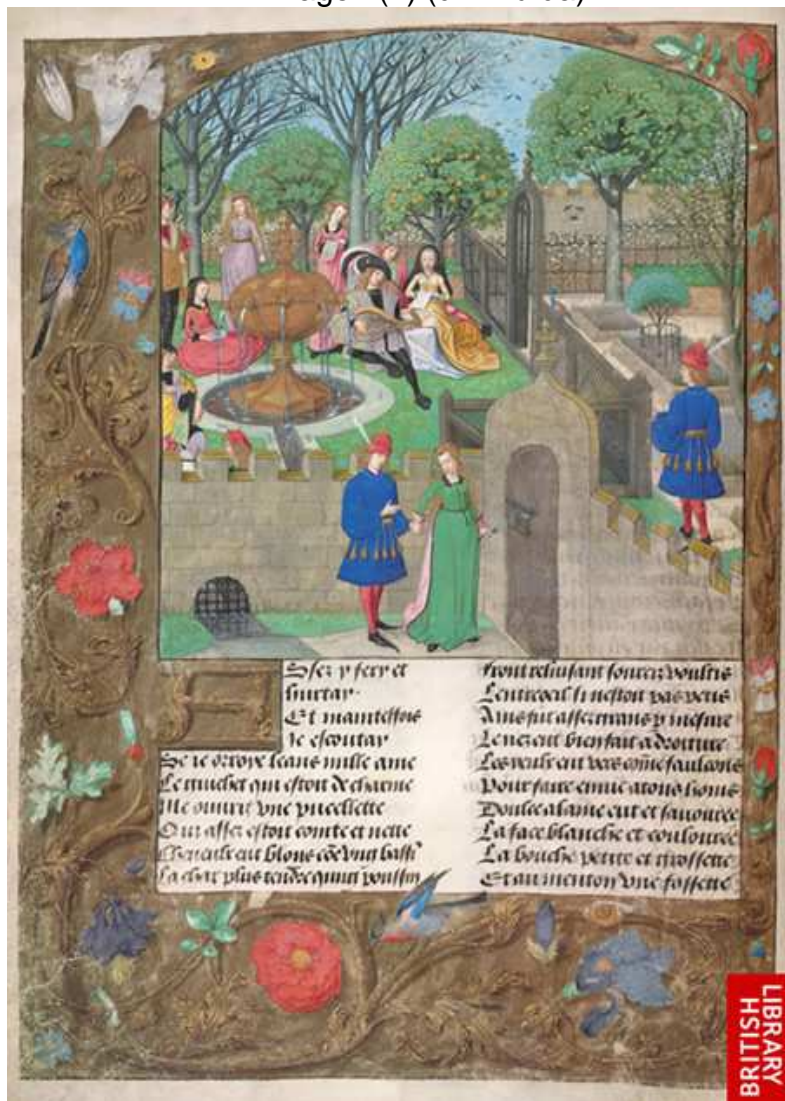 Assez y fery et
hurtay
Et maintesfois
Je escoutay
Se ie orroye leans mille ame
Le guichet qui estoit de charme
Me ouurit vne pucellette
Qui assez estoit cointe et nette
Cheueulx eut blons cõe vng bassī
La char plus tendre qung poussin
Front reluisant sourcez voultis
Lentroeil si nestoit pas petis
Ains fut assez grans p mesure
Le nez eut bien fait a droiture
Les yeulx eut vers cõme faulcons
Pour faire enuie a tous homs
Doulce alaine eut et sauouree
La face blanche et coulouree
La bouche petite et grossette
Et au menton vne fossette
BRITISH
LIBRARY